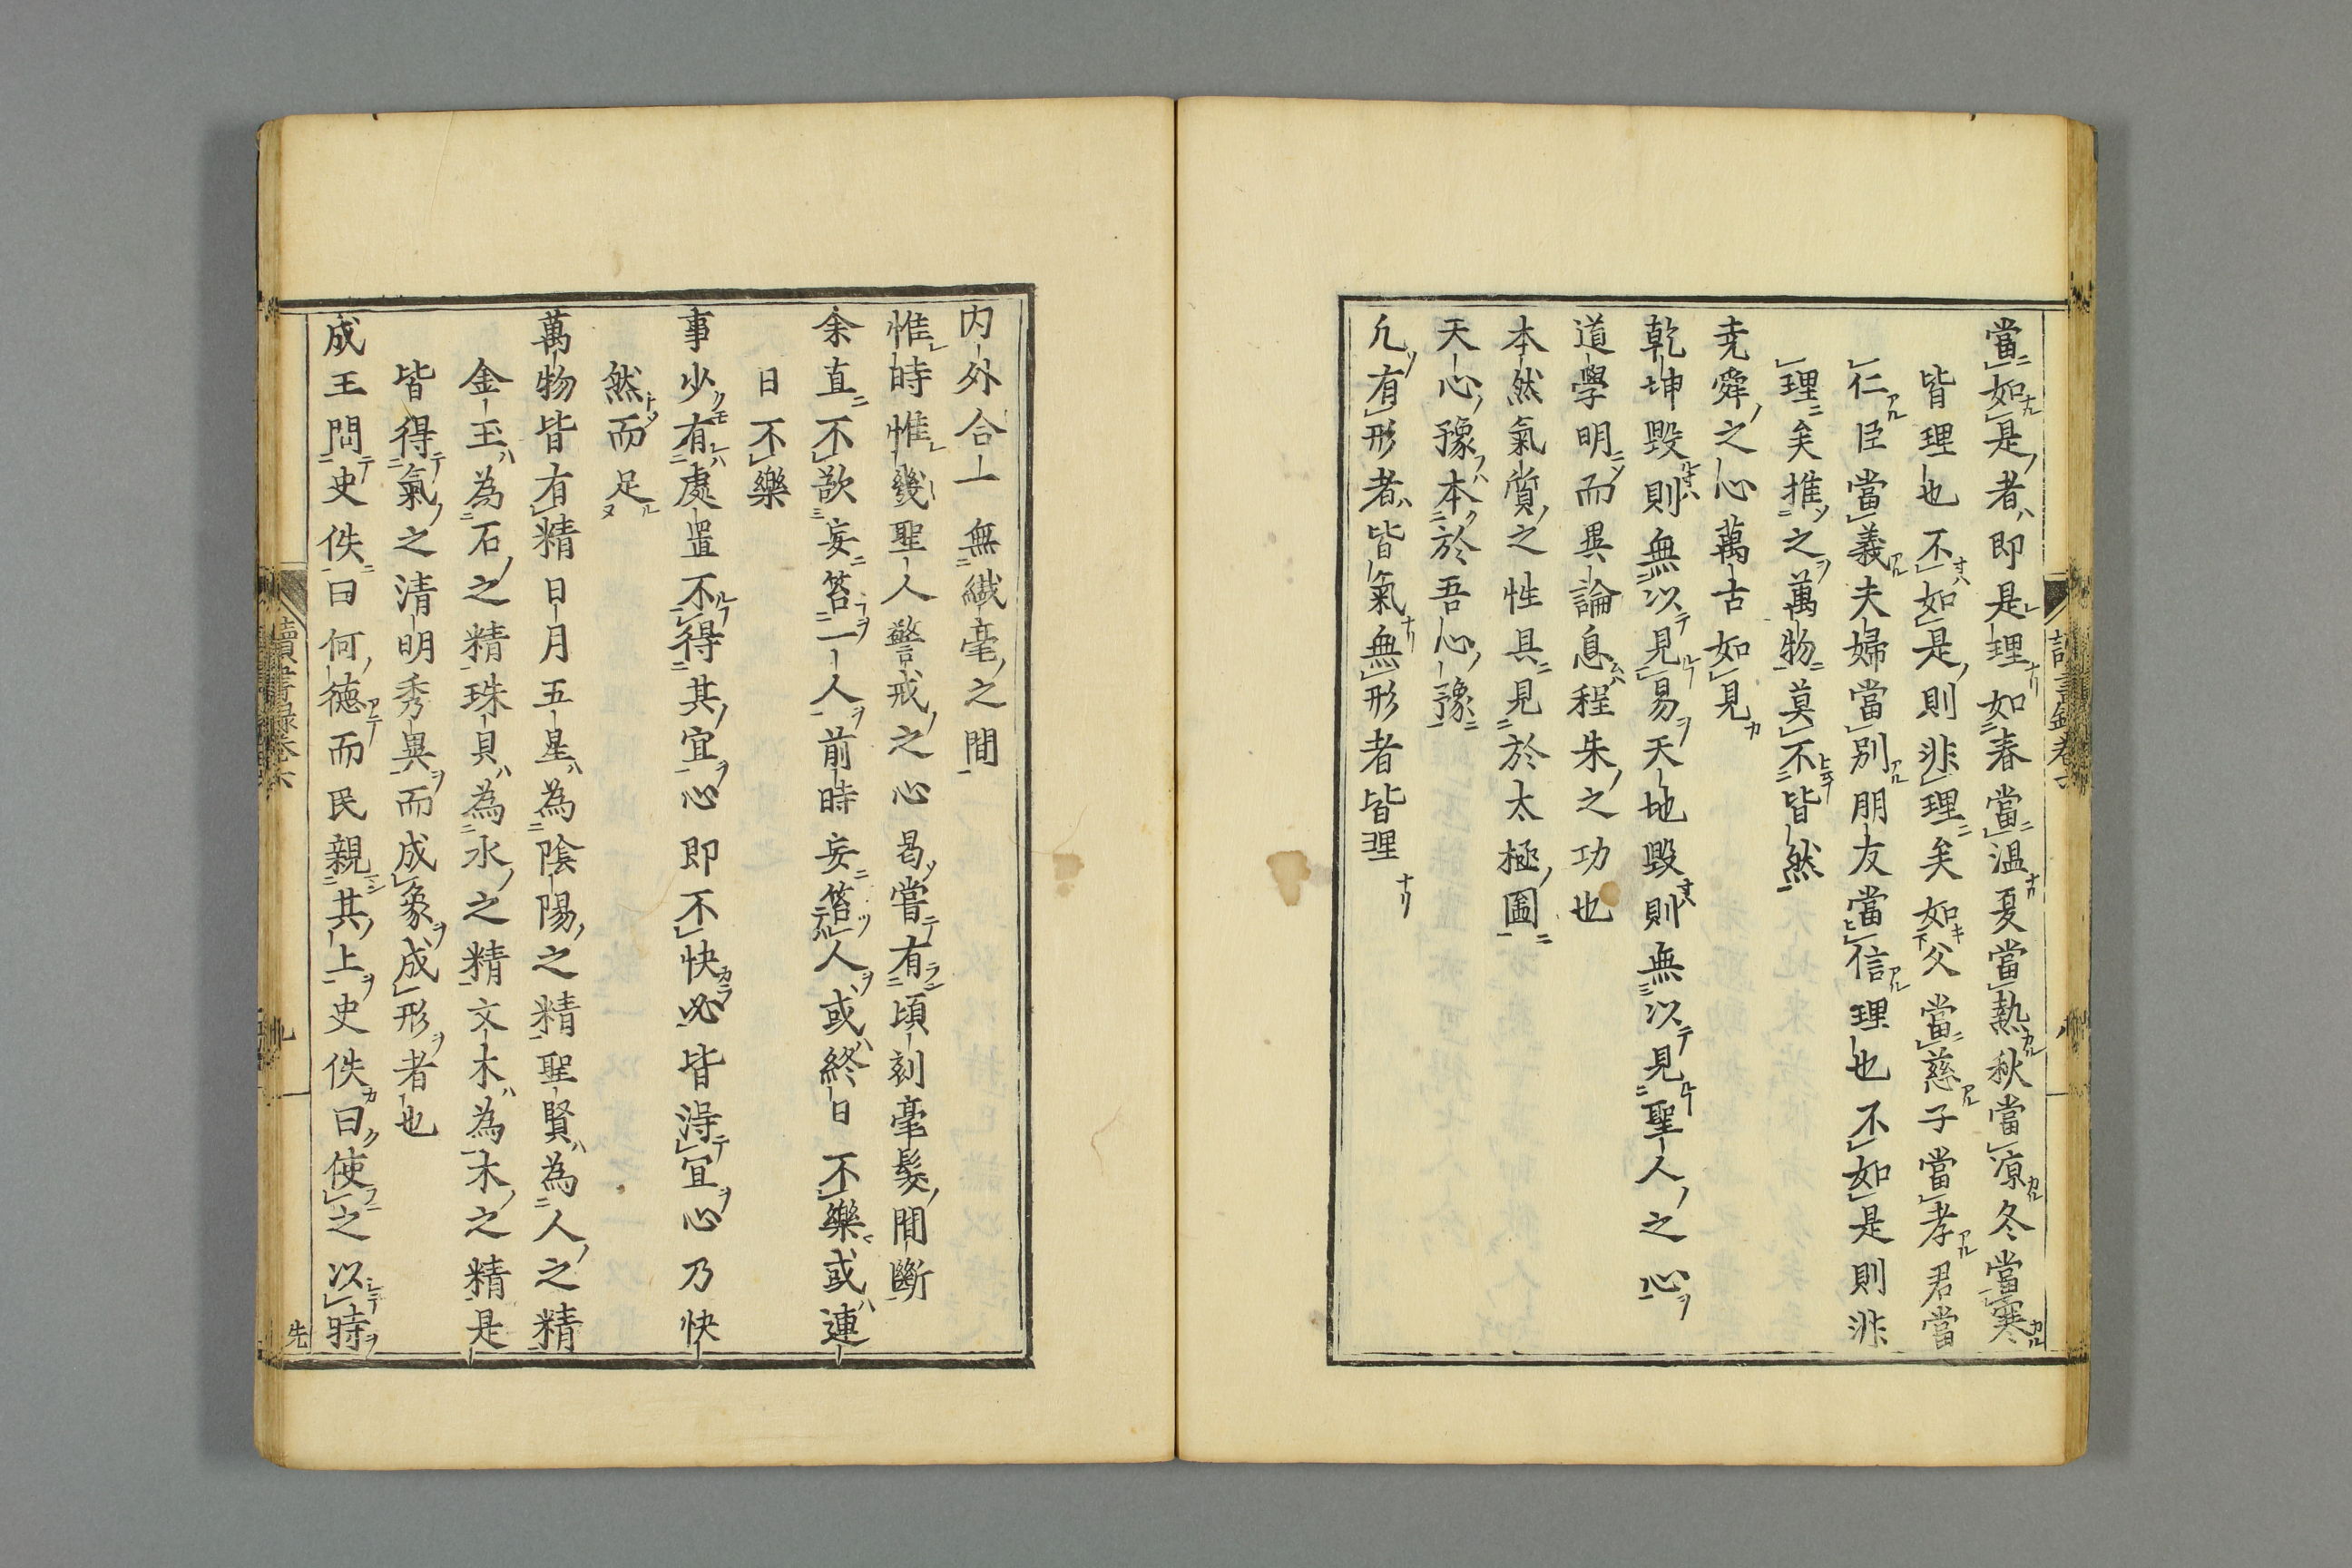 當如是者即是理如春當溫夏當熱秋當凉冬當寒
皆理也不如是則非理矣如父當慈子當孝君當
仁臣當義夫婦當別朋友當信理也不如是則非
理矣推之萬物莫不皆然
尭舜之心萬古如見
乾坤毀則無以見易天地毀則無以見聖人之心
道學明而異論息程朱之功也
本然氣質之性具見於太極圖
天心豫本於吾心豫
凢有形者皆氣無形者皆理
内外合一無纎毫之間
惟時惟幾聖人警戒之心曷嘗有頃刻毫髮間斷
余直不欲妄笞一人前時妄笞人或終日不樂或連
日不樂
事少有處置不得其宜心即不快必皆淂宜心乃快
然而足
萬物皆有精日月五星為陰陽之精聖賢為人之精
金玉為石之精珠貝為水之精文木為木之精是
皆得氣之清明秀異而成象成形者也
成王問史佚曰何德而民親其上史佚曰使之以時
讀書録卷六
九
先